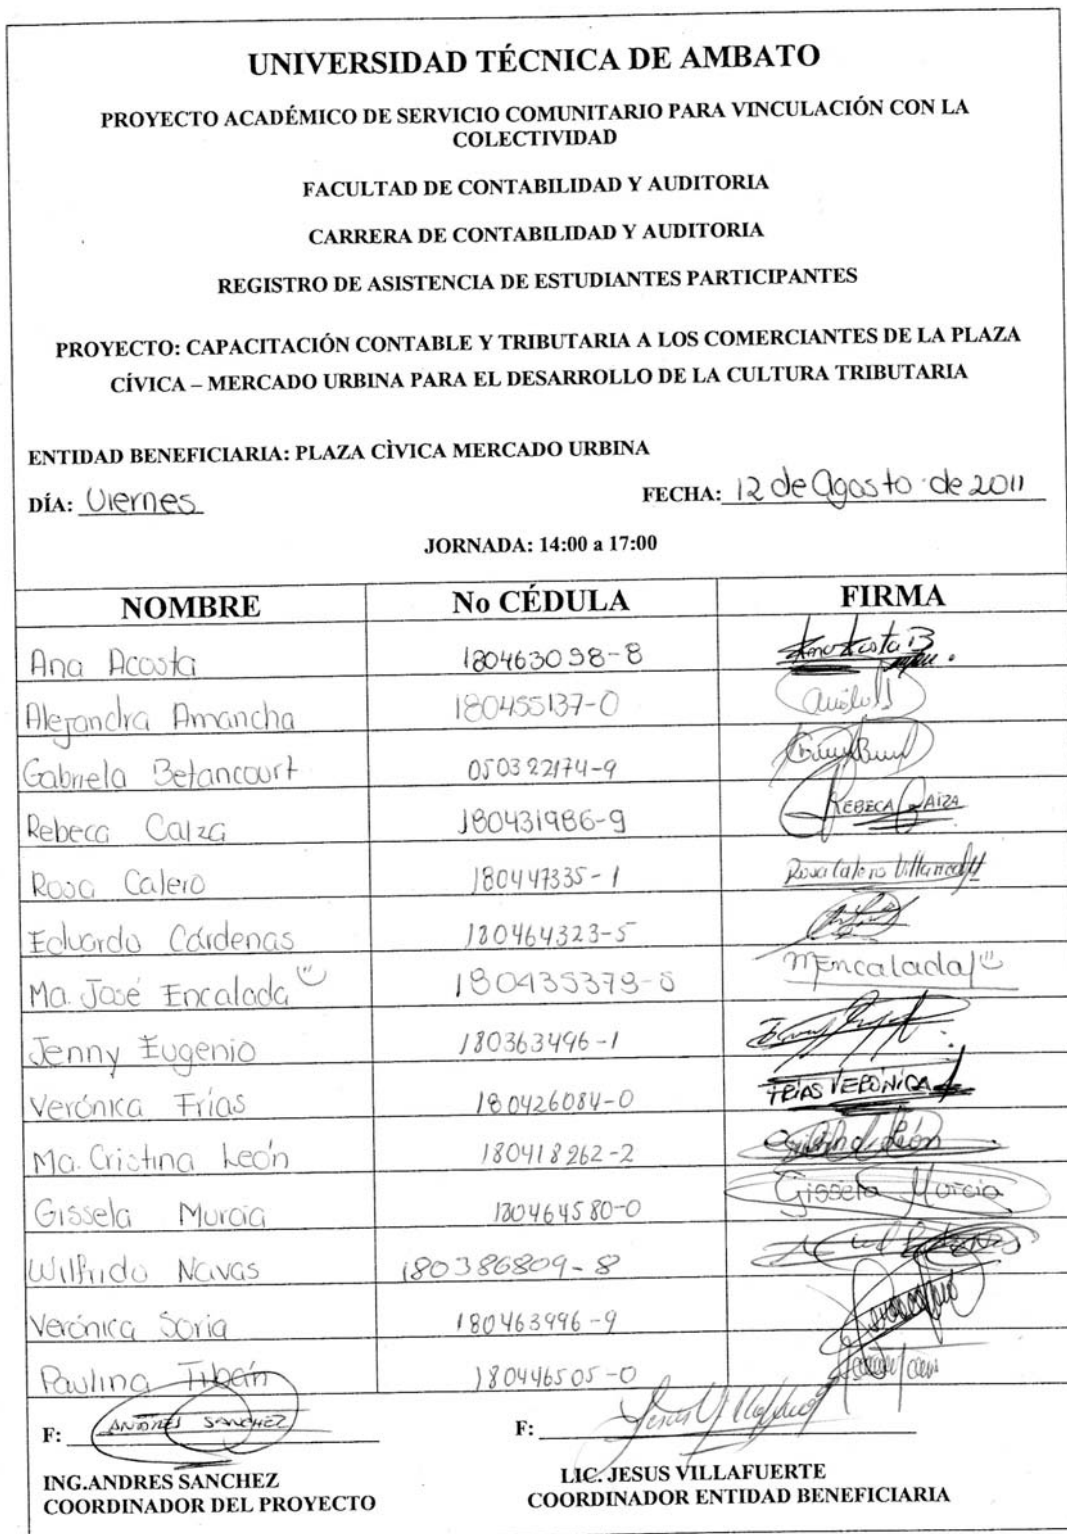 UNIVERSIDAD TÉCNICA DE AMBATO
PROYECTO ACADÉMICO DE SERVICIO COMUNITARIO PARA VINCULACIÓN CON LA
COLECTIVIDAD
FACULTAD DE CONTABILIDAD Y AUDITORIA
CARRERA DE CONTABILIDAD Y AUDITORIA
REGISTRO DE ASISTENCIA DE ESTUDIANTES PARTICIPANTES
PROYECTO: CAPACITACIÓN CONTABLE Y TRIBUTARIA A LOS COMERCIANTES DE LA PLAZA
CÍVICA – MERCADO URBINA PARA EL DESARROLLO DE LA CULTURA TRIBUTARIA
ENTIDAD BENEFICIARIA: PLAZA CÌVICA MERCADO URBINA
DÍA: Viernes FECHA: 12 de Agosto de 2011
JORNADA: 14:00 a 17:00
NOMBRE No CÉDULA FIRMA
Ana Acosta 180463098-8
Alejandra Amancha 180455137-0
Gabriela Betancourt 050322174-9
Rebeca Caiza 180431986-9 REBECA CAIZA
Rosa Calero 180447335-1 Rosa Calero
Eduardo Cárdenas 180464323-5
Ma. José Encalada 180435379-5 MEncalada
Jenny Eugenio 180363496-1
Verónica Frías 180426084-0 FRIAS VERÓNICA
Ma. Cristina León 180418262-2 León
Gissela Murcia 180464580-0 Gissela Murcia
Wilfrido Navas 180386809-8
Verónica Soria 180463996-9
Paulina Tibán 180446505-0
F: ANDRES SANCHEZ F: Jesús Villafuerte
ING.ANDRES SANCHEZ LIC. JESUS VILLAFUERTE
COORDINADOR DEL PROYECTO COORDINADOR ENTIDAD BENEFICIARIA